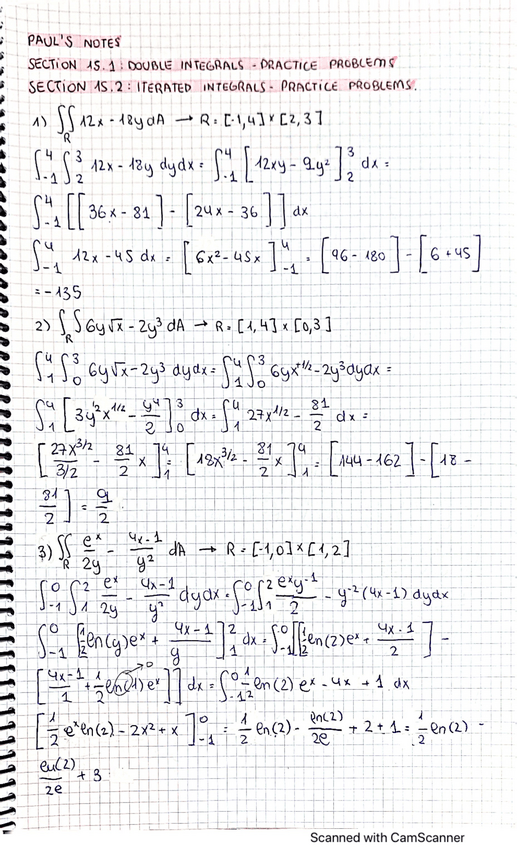 PAUL'S NOTES
SECTION 15.1: DOUBLE INTEGRALS - PRACTICE PROBLEMS
SECTION 15.2: ITERATED INTEGRALS - PRACTICE PROBLEMS.
1) ∬_R 12x - 18y dA → R = [-1,4] × [2,3]
∫_{-1}^{4} ∫_{2}^{3} 12x - 18y dydx = ∫_{-1}^{4} [12xy - 9y²]_{2}^{3} dx =
∫_{-1}^{4} [[36x - 81] - [24x - 36]] dx
∫_{-1}^{4} 12x - 45 dx = [6x² - 45x]_{-1}^{4} = [96 - 180] - [6 + 45]
= -135
2) ∬_R 6y√x - 2y³ dA → R = [1,4] × [0,3]
∫_{1}^{4} ∫_{0}^{3} 6y√x - 2y³ dydx = ∫_{1}^{4} ∫_{0}^{3} 6yx^{1/2} - 2y³ dydx =
∫_{1}^{4} [3y²x^{1/2} - y⁴/2]_{0}^{3} dx = ∫_{1}^{4} 27x^{1/2} - 81/2 dx =
[27x^{3/2}/3/2 - 81/2 x]_{1}^{4} = [18x^{3/2} - 81/2 x]_{1}^{4} = [144 - 162] - [18 -
81/2] = 9/2
3) ∬_R e^x/2y - 4x-1/y² dA → R = [-1,0] × [1,2]
∫_{-1}^{0} ∫_{1}^{2} e^x/2y - 4x-1/y² dydx = ∫_{-1}^{0} ∫_{1}^{2} e^x y^{-1}/2 - y^{-2}(4x-1) dydx
∫_{-1}^{0} [1/2 ln(y)e^x + 4x-1/y]_{1}^{2} dx = ∫_{-1}^{0} [[1/2 ln(2)e^x + 4x-1/2] -
[4x-1/1 + 1/2 ln(1)e^x]] dx = ∫_{-1}^{0} 1/2 ln(2)e^x - 4x + 1 dx
[1/2 e^x ln(2) - 2x² + x]_{-1}^{0} = 1/2 ln(2) - ln(2)/2e + 2 + 1 = 1/2 ln(2) -
ln(2)/2e + 3
Scanned with CamScanner